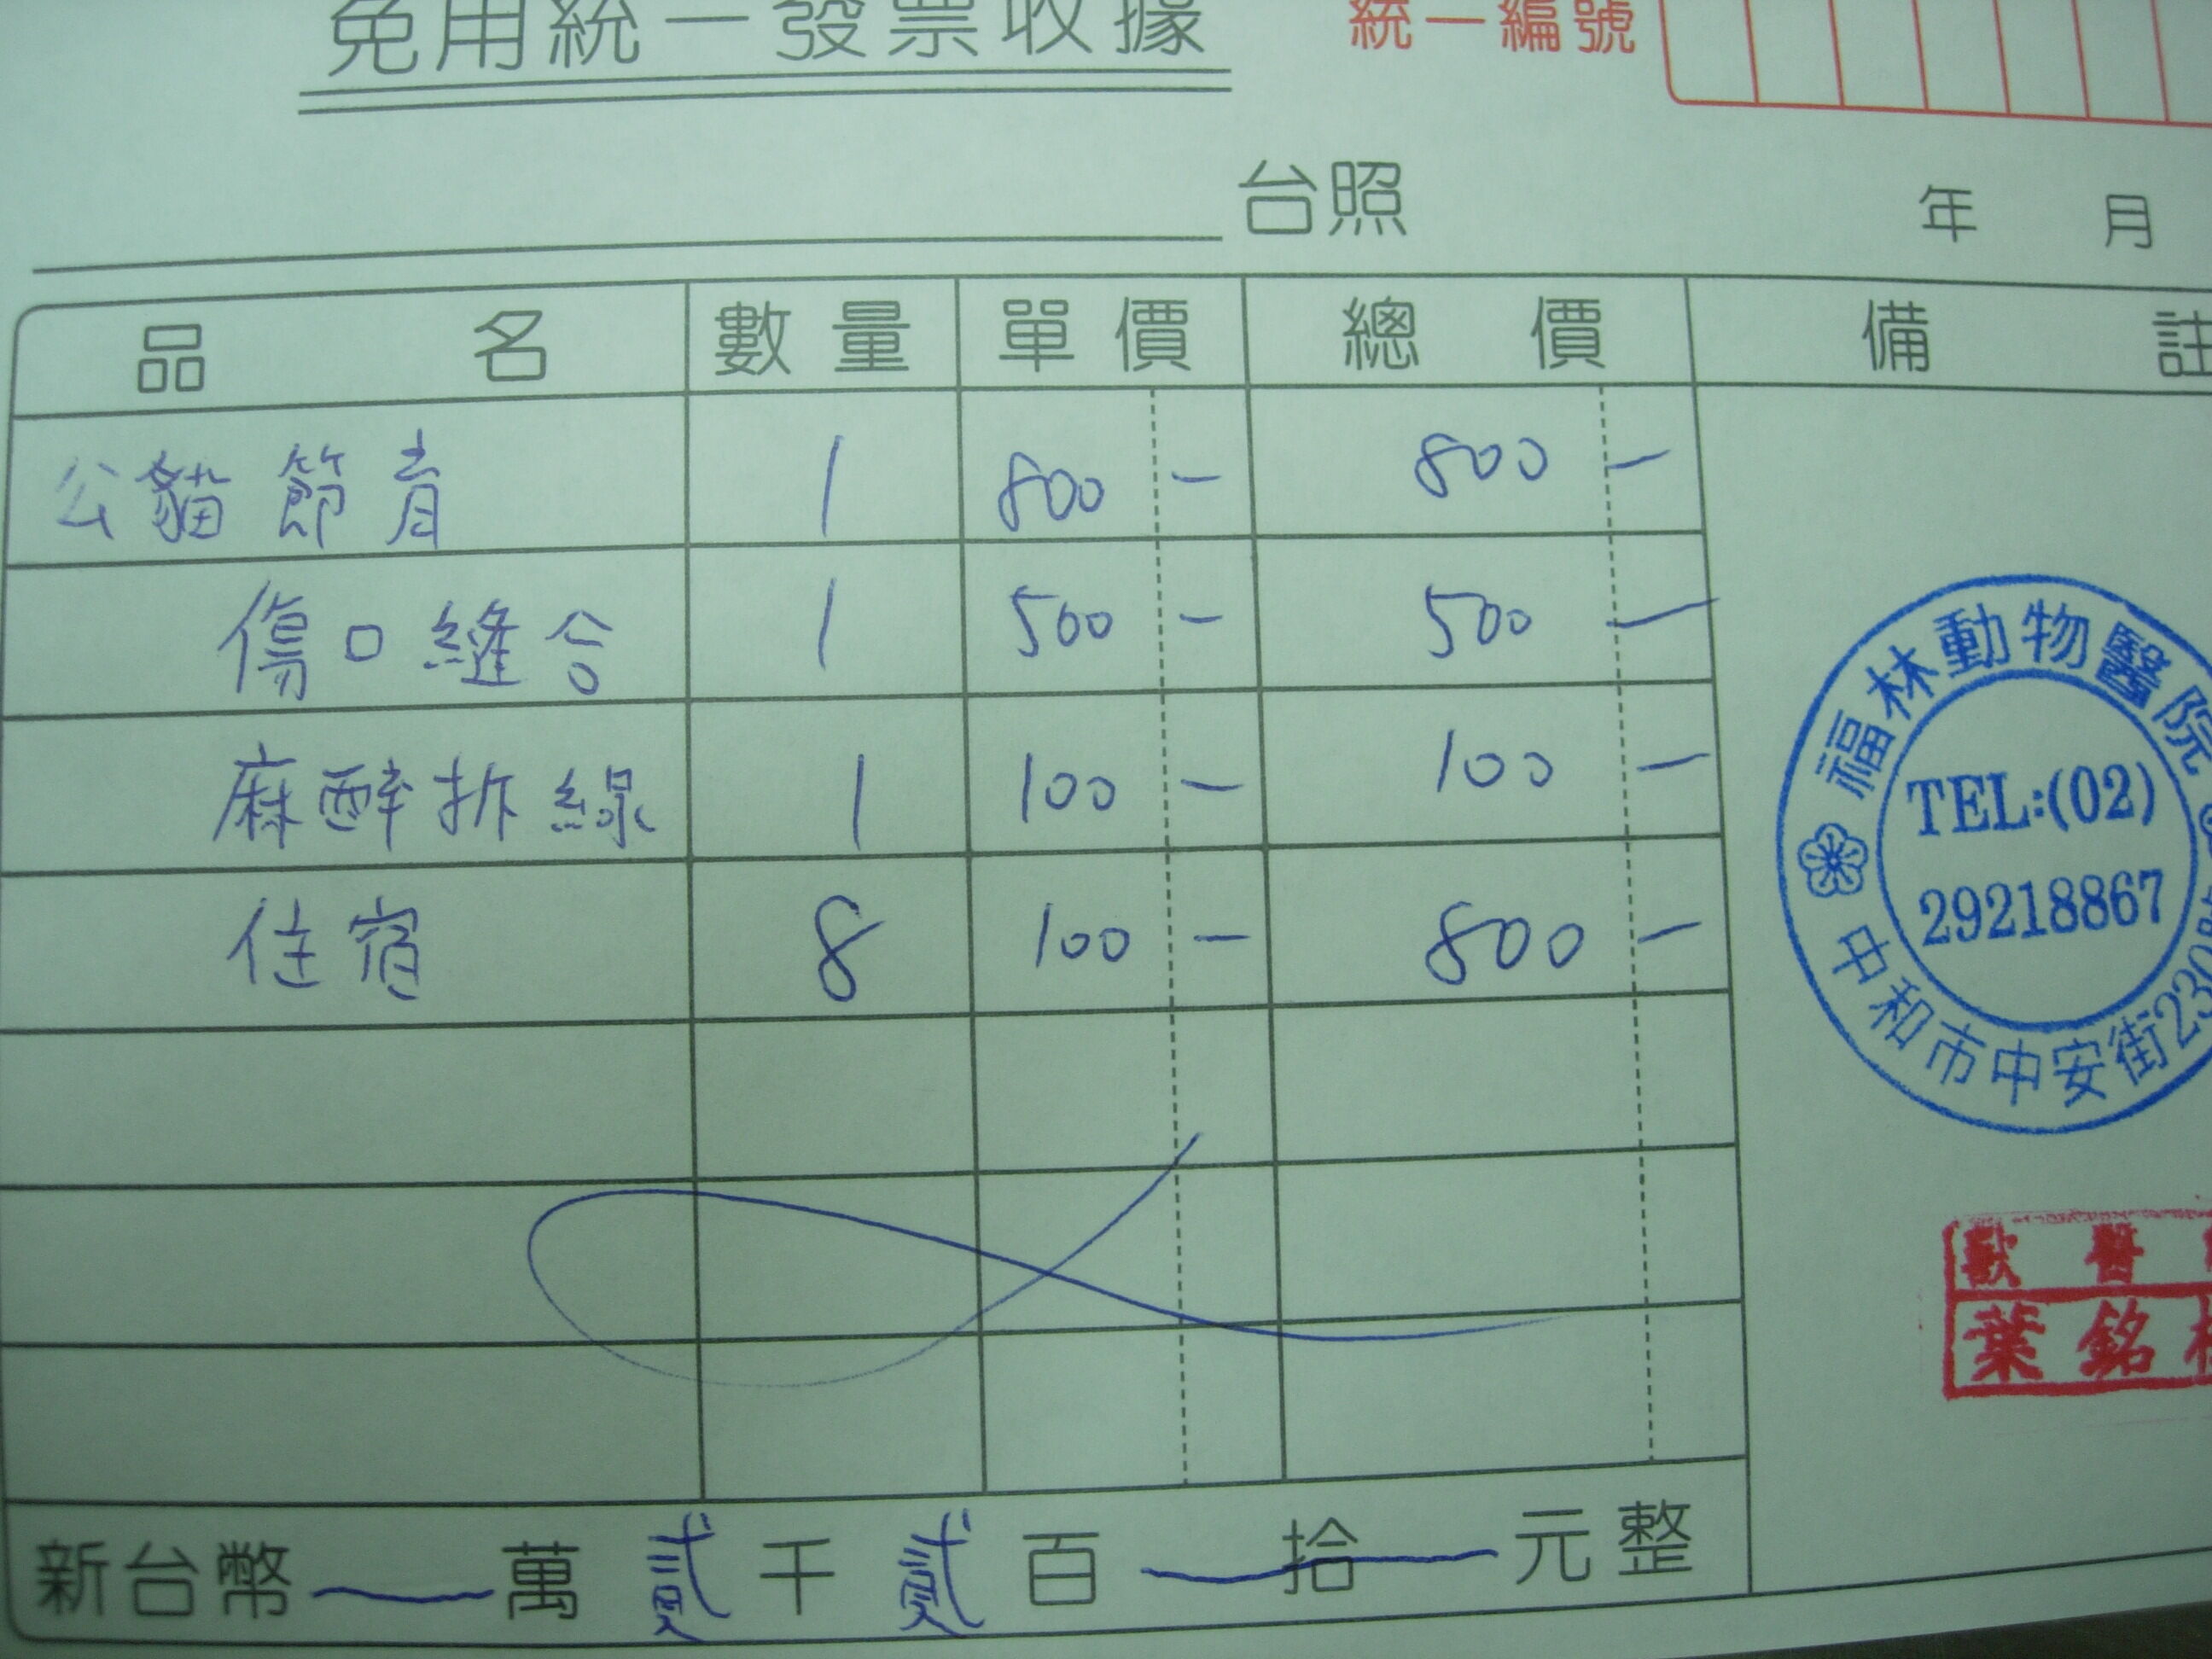 免用統一發票收據
統一編號
台照
年 月
品名 數量 單價 總價 備註
公貓節育 1 800 - 800 -
傷口縫合 1 500 - 500 -
麻醉拆線 1 100 - 100 -
住宿 8 100 - 800 -
福林動物醫院
TEL:(02)
29218867
中和市中安街230
獸醫
葉銘
新台幣 — 萬 貳 千 貳 百 — 拾 — 元整